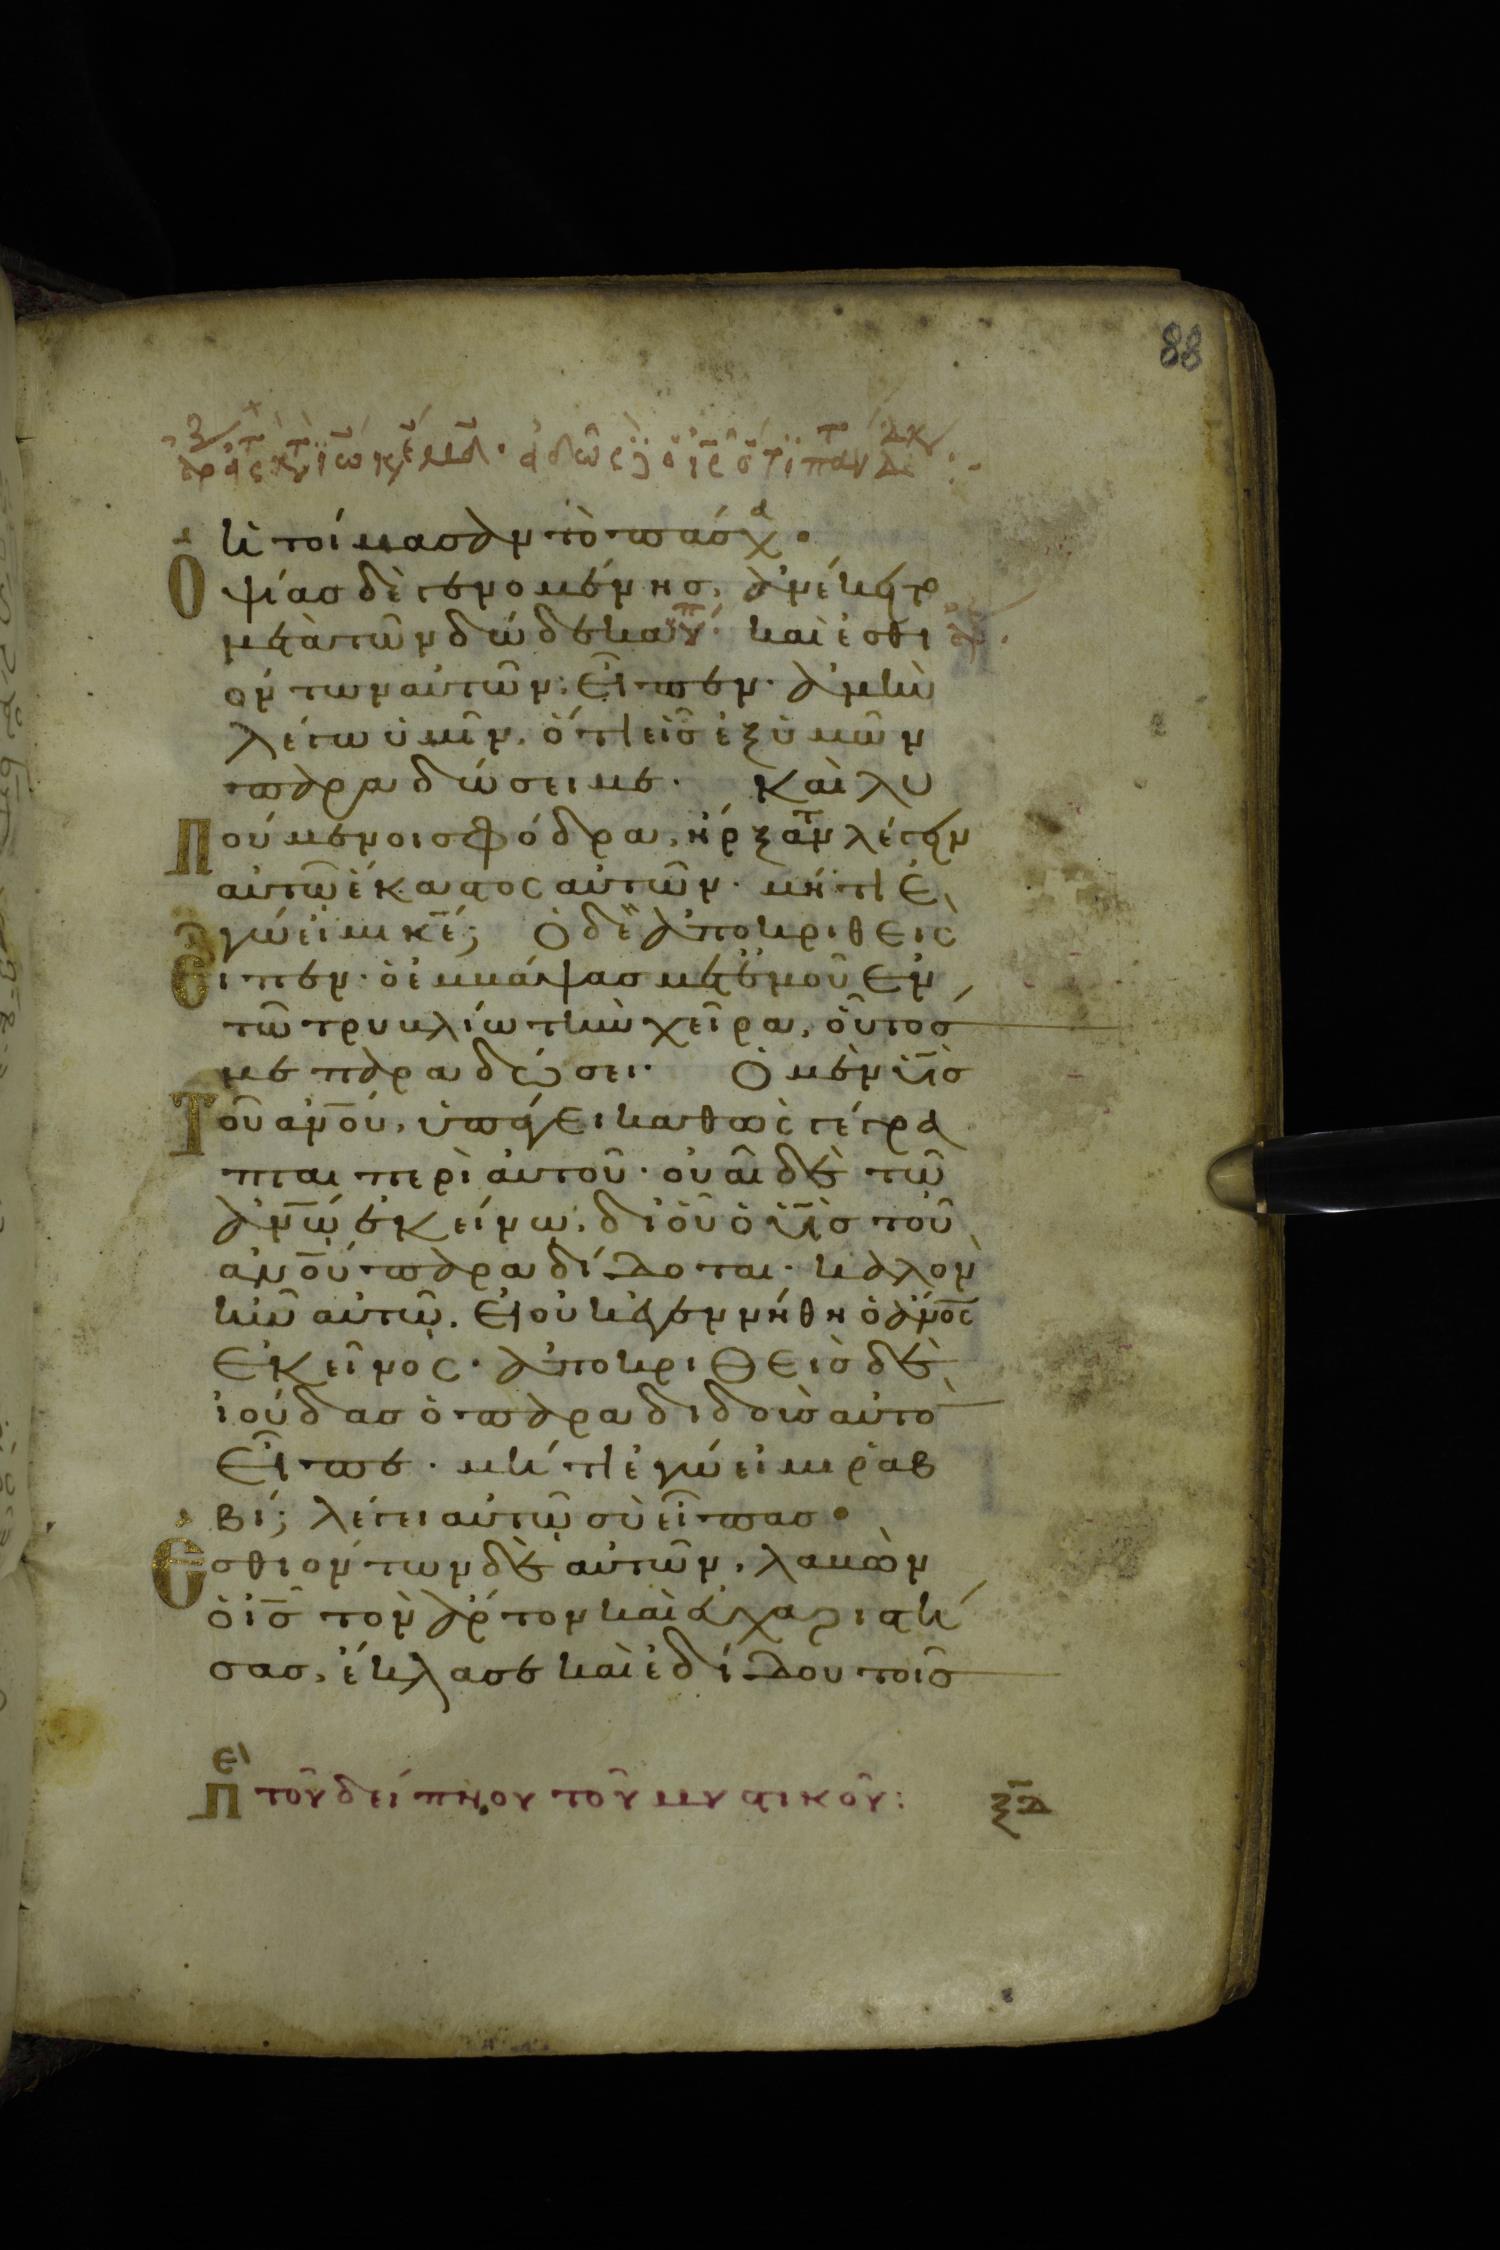 88
ἡτοίμασαν τὸ πάσχα.
Ὀψίας δὲ γενομένης, ἀνέκειτο
μετὰ τῶν δώδεκα· καὶ ἐσθι
όντων αὐτῶν· εἶπεν· ἀμὴν
λέγω ὑμῖν, ὅτι εἷς ἐξ ὑμῶν
παραδώσει με. Καὶ λυ
πούμενοι σφόδρα, ἤρξατο λέγειν
αὐτῷ ἕκαστος αὐτῶν· μήτι ἐ
γώ εἰμι κε; Ὁ δὲ ἀποκριθεὶς
εἶπεν· ὁ ἐμβάψας μετ' ἐμοῦ ἐν
τῷ τρυβλίω τὴν χεῖρα, οὗτος
με παραδώσει. Ὁ μὲν υἱὸς
Τοῦ ἀνου, ὑπάγει καθὼς γέγρα
πται περὶ αὐτοῦ· οὐαὶ δὲ τῶ
ἀνω ἐκείνω, δι' οὗ ὁ υἱὸς τοῦ
ἀνου παραδίδοται· καλὸν
ἦν αὐτῷ, εἰ οὐκ ἐγεννήθη ὁ ἀνος
ἐκεῖνος· ἀποκριθεὶς δὲ
ἰούδας ὁ παραδιδοὺς αὐτὸ
εἶπε· μήτι ἐγώ εἰμι ῥαβ
βί; λέγει αὐτῷ σὺ εἶπας.
Ἐσθιόντων δὲ αὐτῶν, λαβὼν
ὁ ις τὸν ἄρτον καὶ εὐχαριστή
σας, ἔκλασε καὶ ἐδίδου τοῖς
π ει τοῦ δείπνου τοῦ μυστικοῦ: ξδ